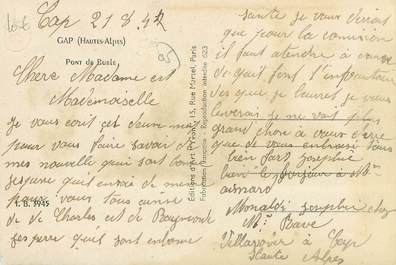 Gap 21 8 42
95
GAP (HAUTES-ALPES)
PONT DE BURLE
Chere Madame est
Mademoiselle
je vous ecrit ses deux mot
pour vous faire savoir de
mes nouvelle qui sont bonne
jespere qu'il en soi de meme
pour vous tous
de de Charles et de Raymonde
jespere qu'il sont en bonne
Y. B. 3945
Éditions d'Art Yvon, 15, Rue Martel, Paris
Fabrication Française - Reproduction interdite
santé je vous dirai
que pour la comision
il faut atendre à cause
de qu'il font l'inspection
des que je
je ne vois plus
grand chose à vous dire
que de vous embrasé tous
bien fort josephine
bien le bonjour à Mr
asnard
Monaldi josephine chez
Mr Bave
à Gap
Haute Alpes